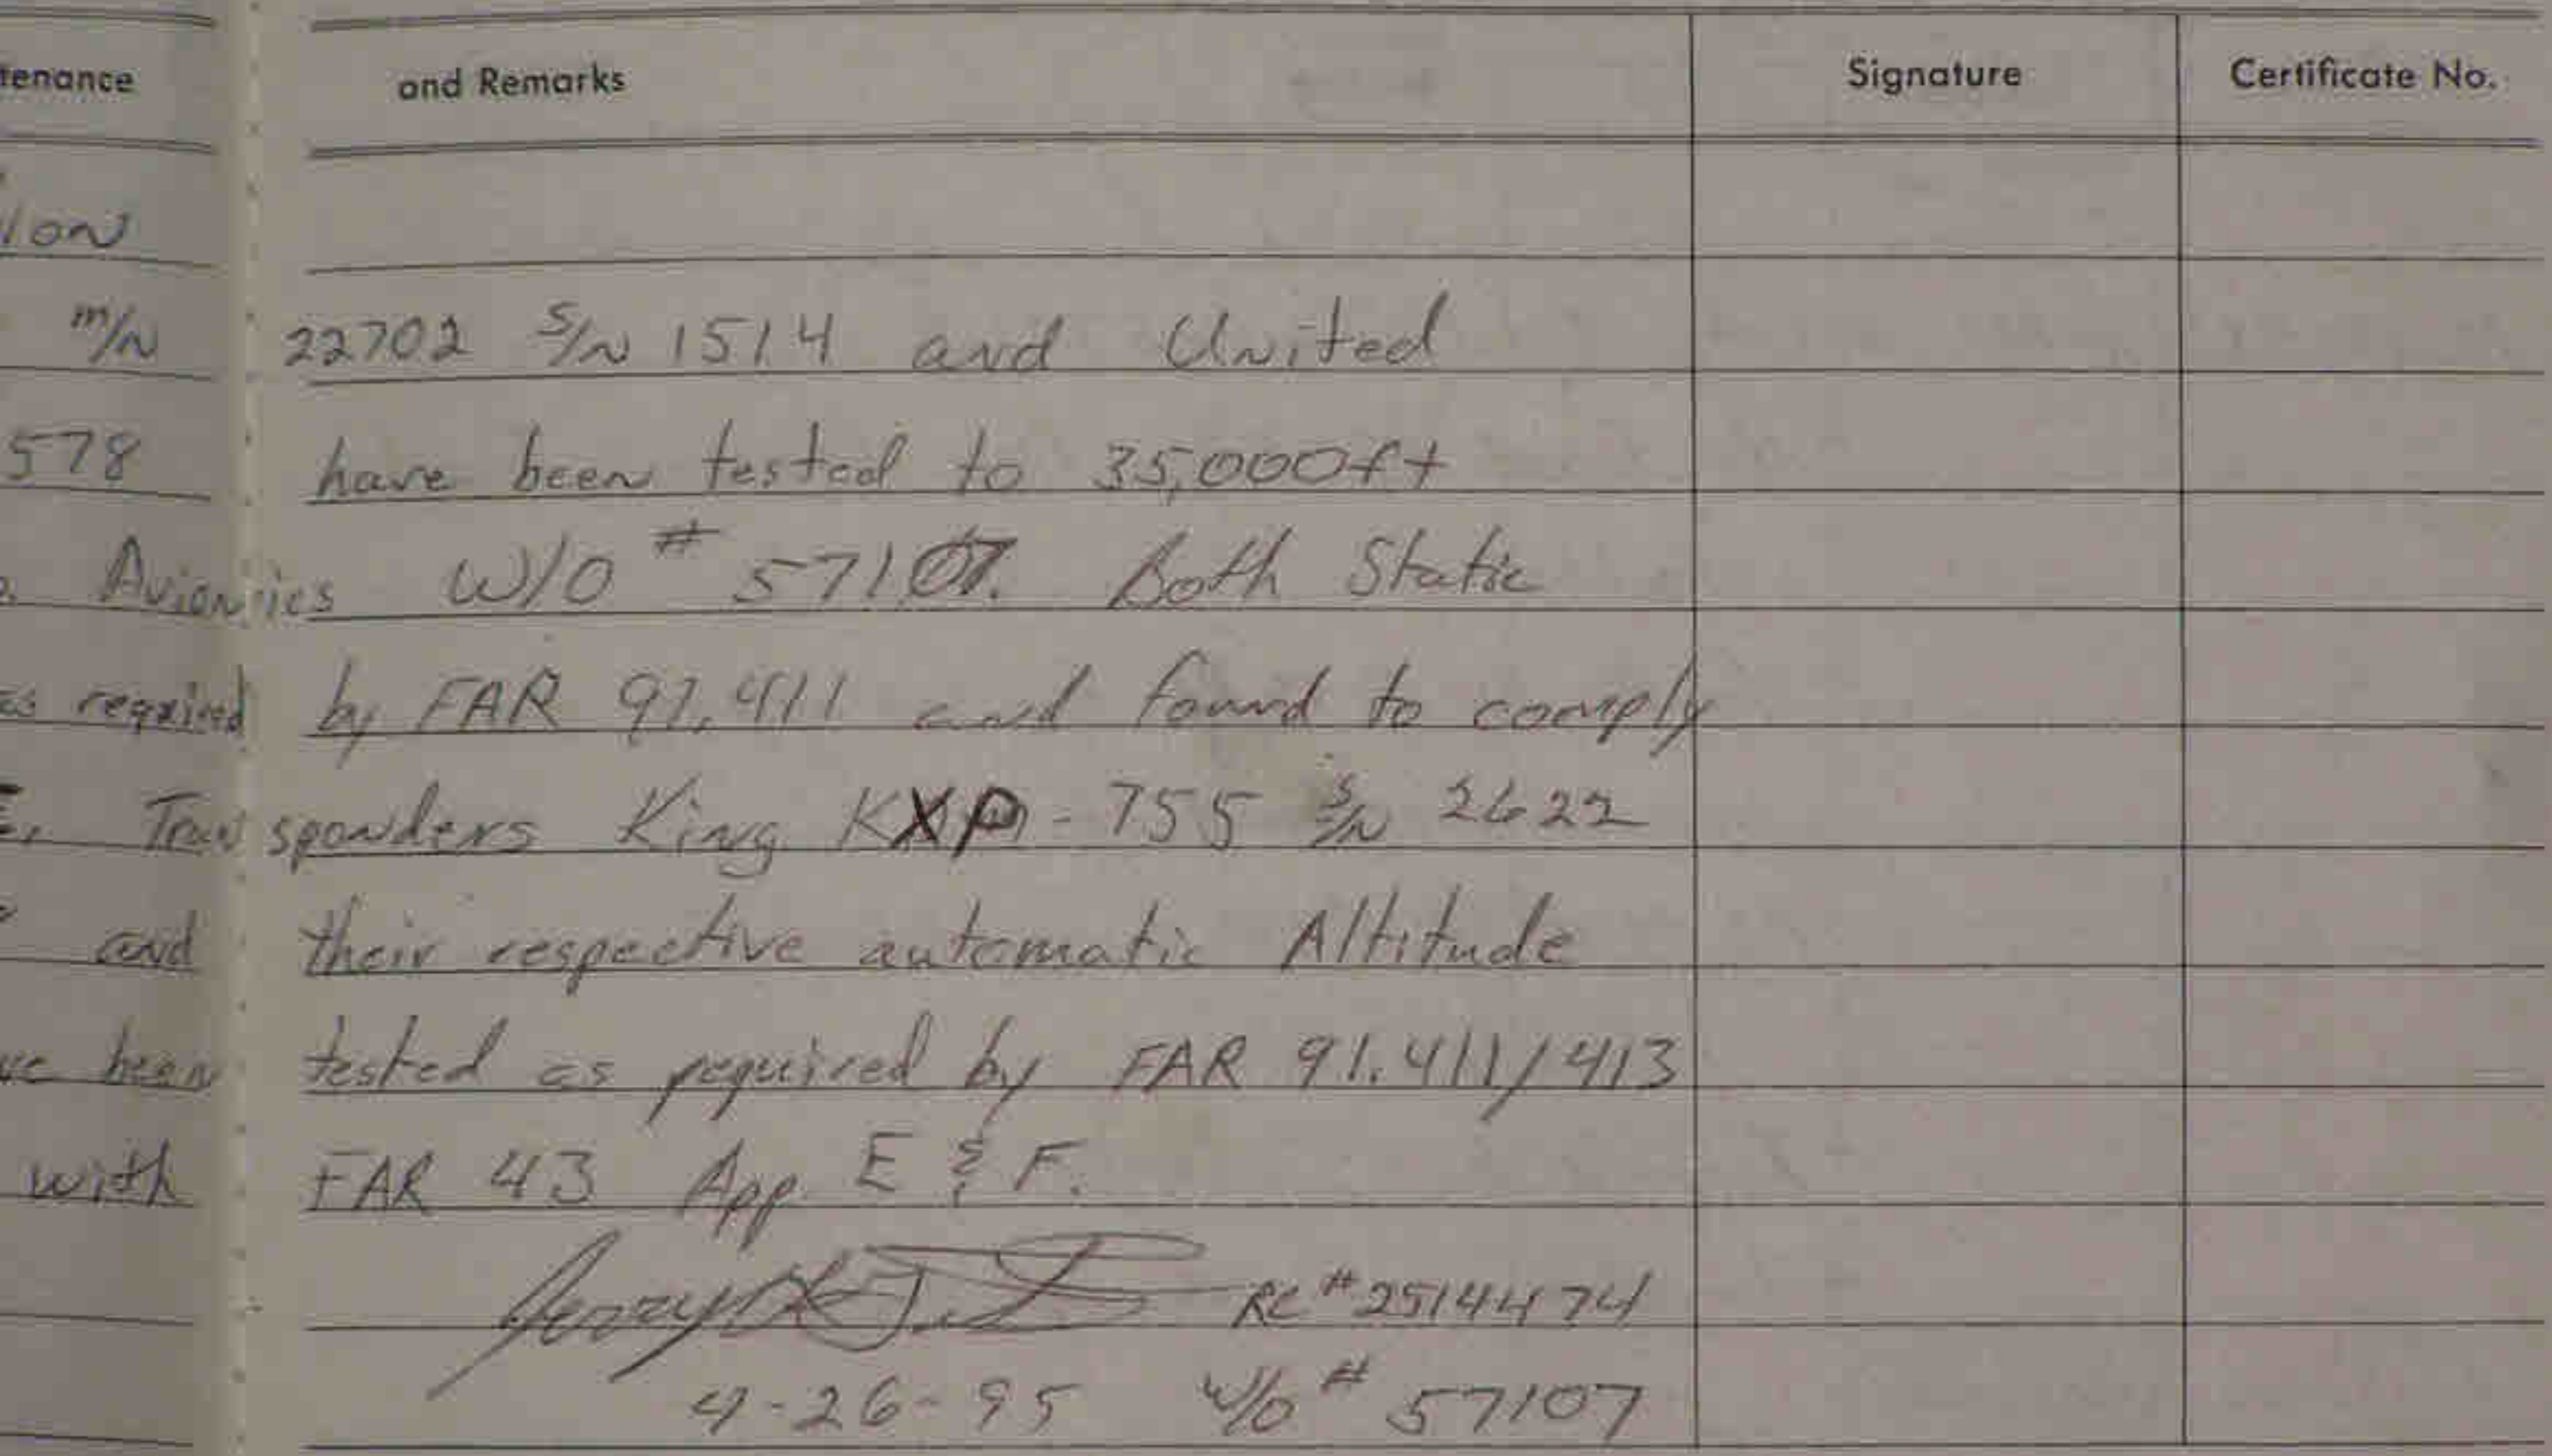 tenance and Remarks Signature Certificate No.
m/N 22702 S/N 1514 and United
578 have been tested to 35,000ft
Avionics W/O # 57107. Both Static
as required by FAR 91.411 and found to comply
Transponders King KXP-755 S/N 2622
and their respective automatic Altitude
ve been tested as required by FAR 91.411/413
with FAR 43 App. E & F.
Jerry RC # 2514474
4-26-95 W/O # 57107